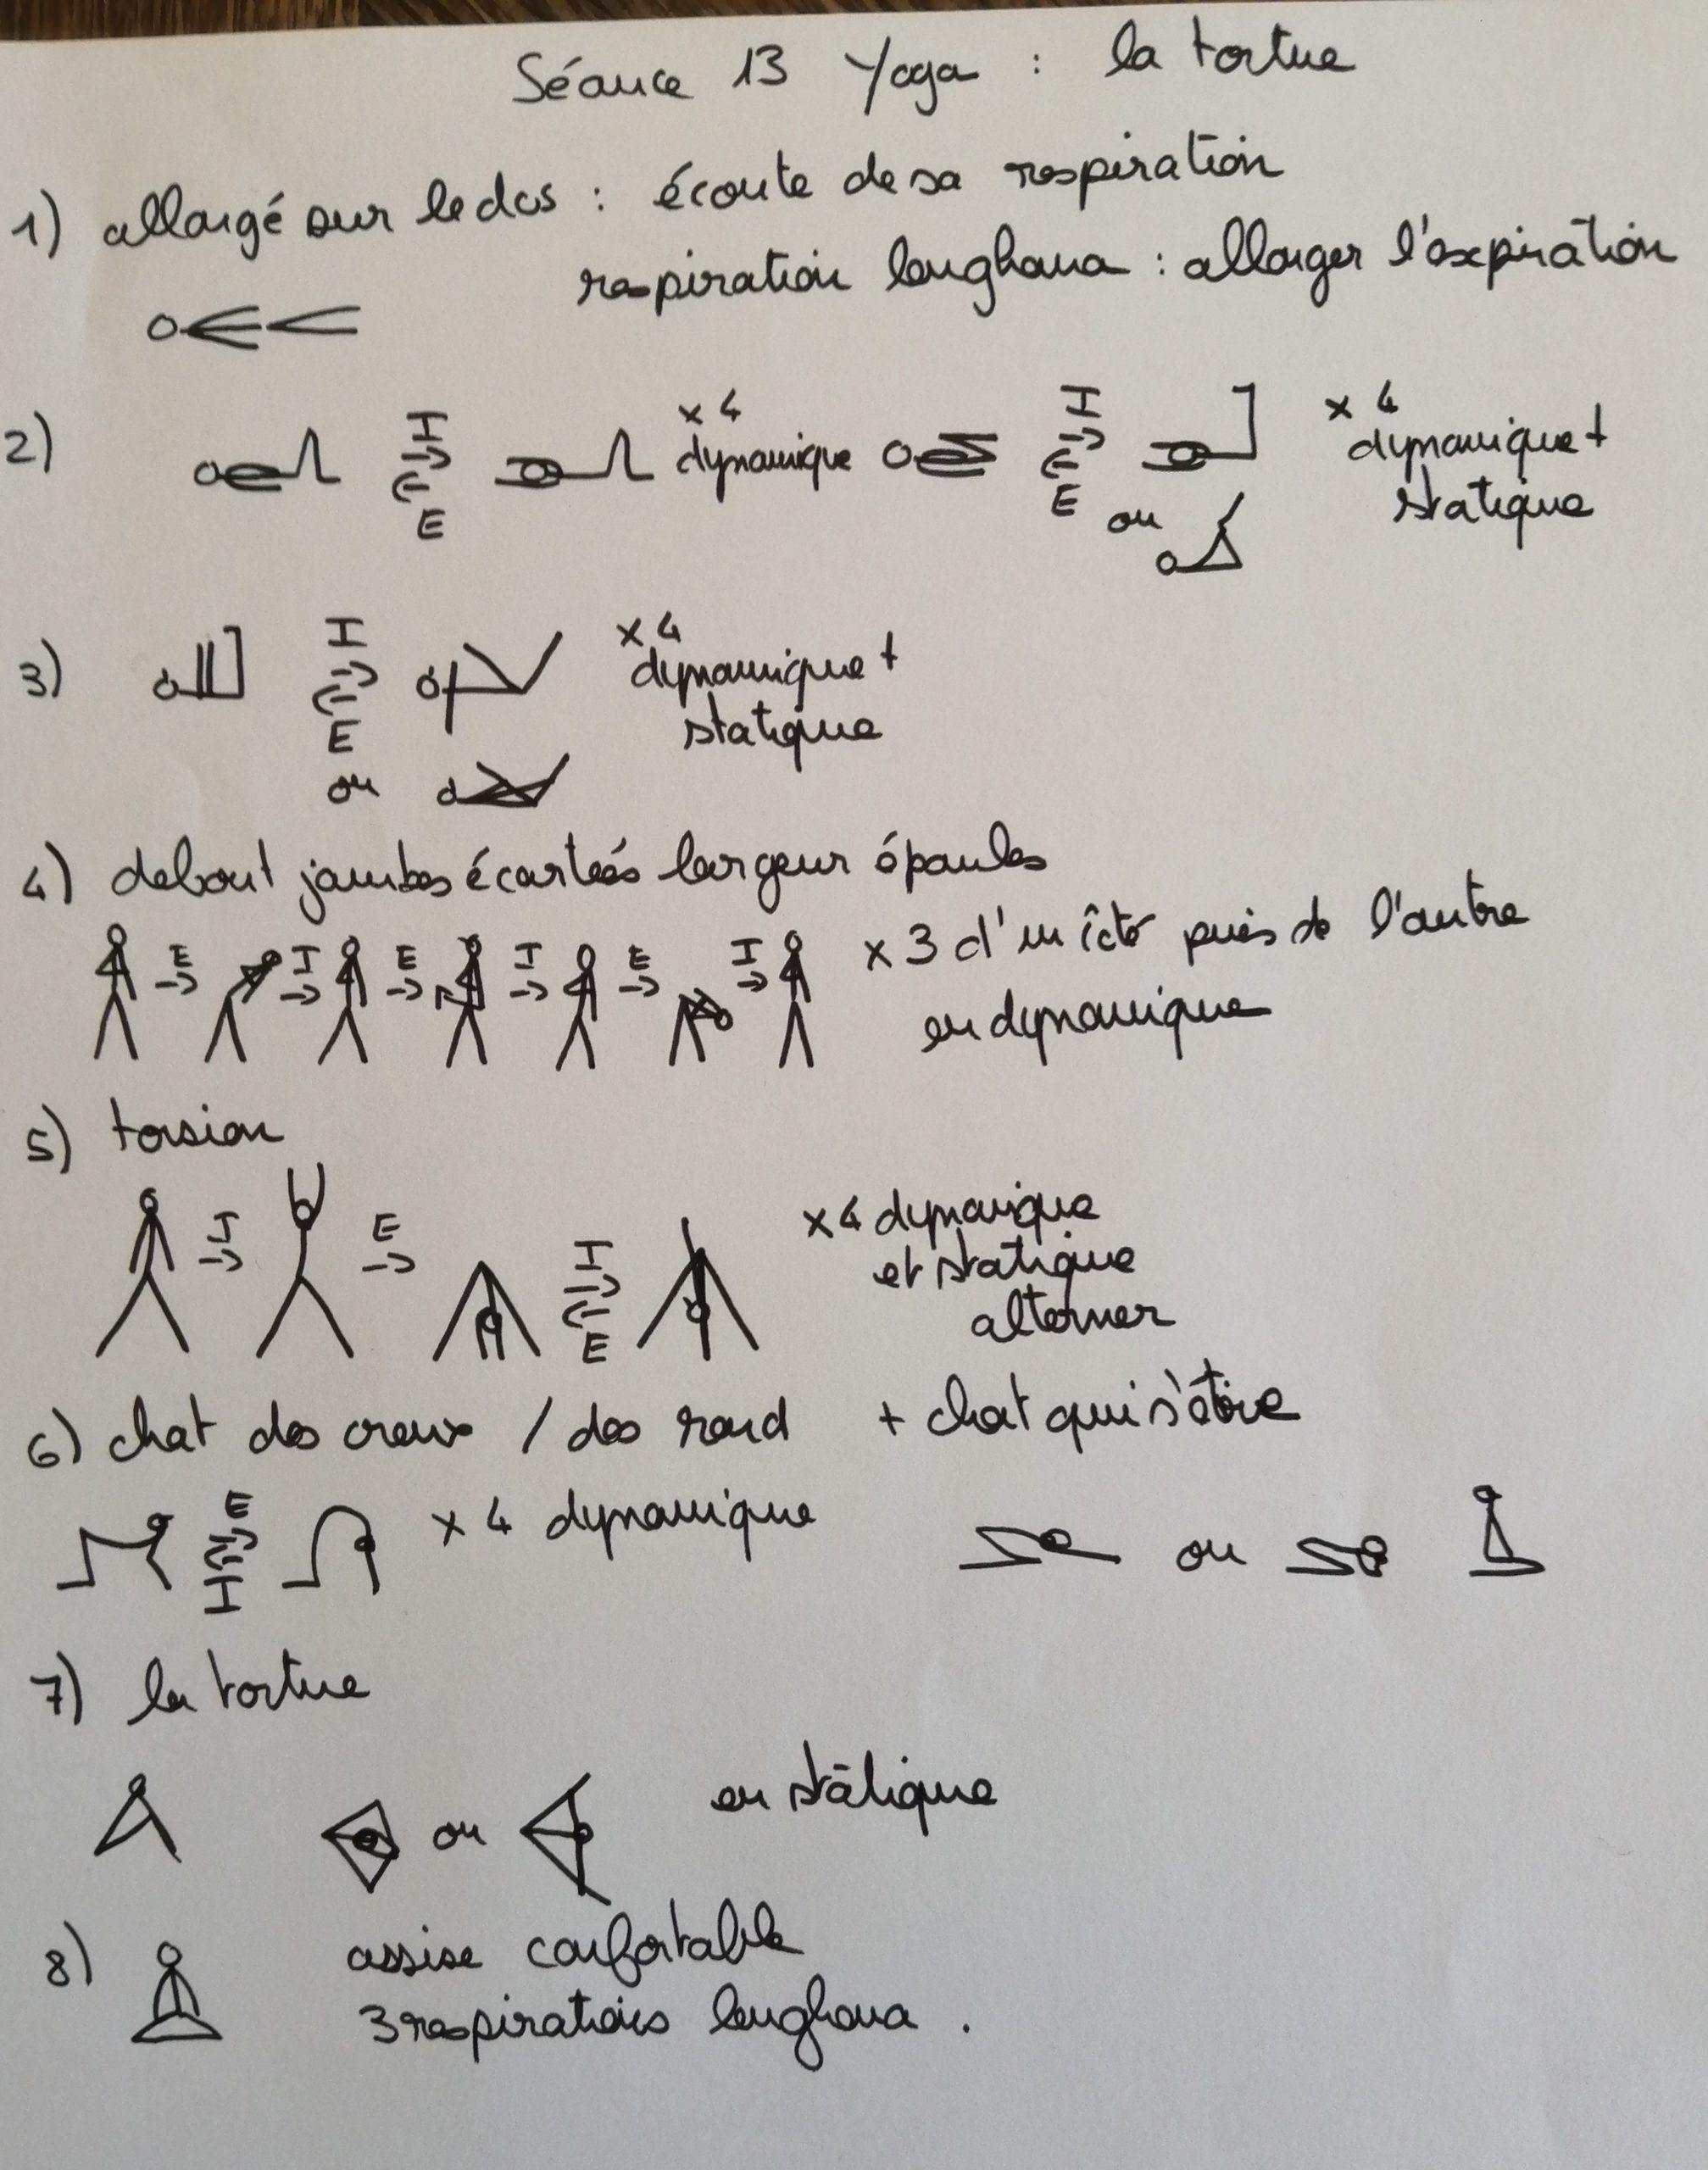 Séance 13 Yoga : la tortue
1) allongé sur le dos : écoute de sa respiration
respiration langhana : allonger l'expiration
2) I E x4 dynamique I E ou x4 dynamique + statique
3) I E ou x4 dynamique + statique
4) debout jambes écartées largeur épaules
E I E I E I x3 d'un côté puis de l'autre
en dynamique
5) torsion
I E I E x4 dynamique
et statique
alterner
6) chat dos creux / dos rond + chat qui s'étire
E I x4 dynamique ou
7) la tortue
ou en statique
8) assise confortable
3 respirations langhana.